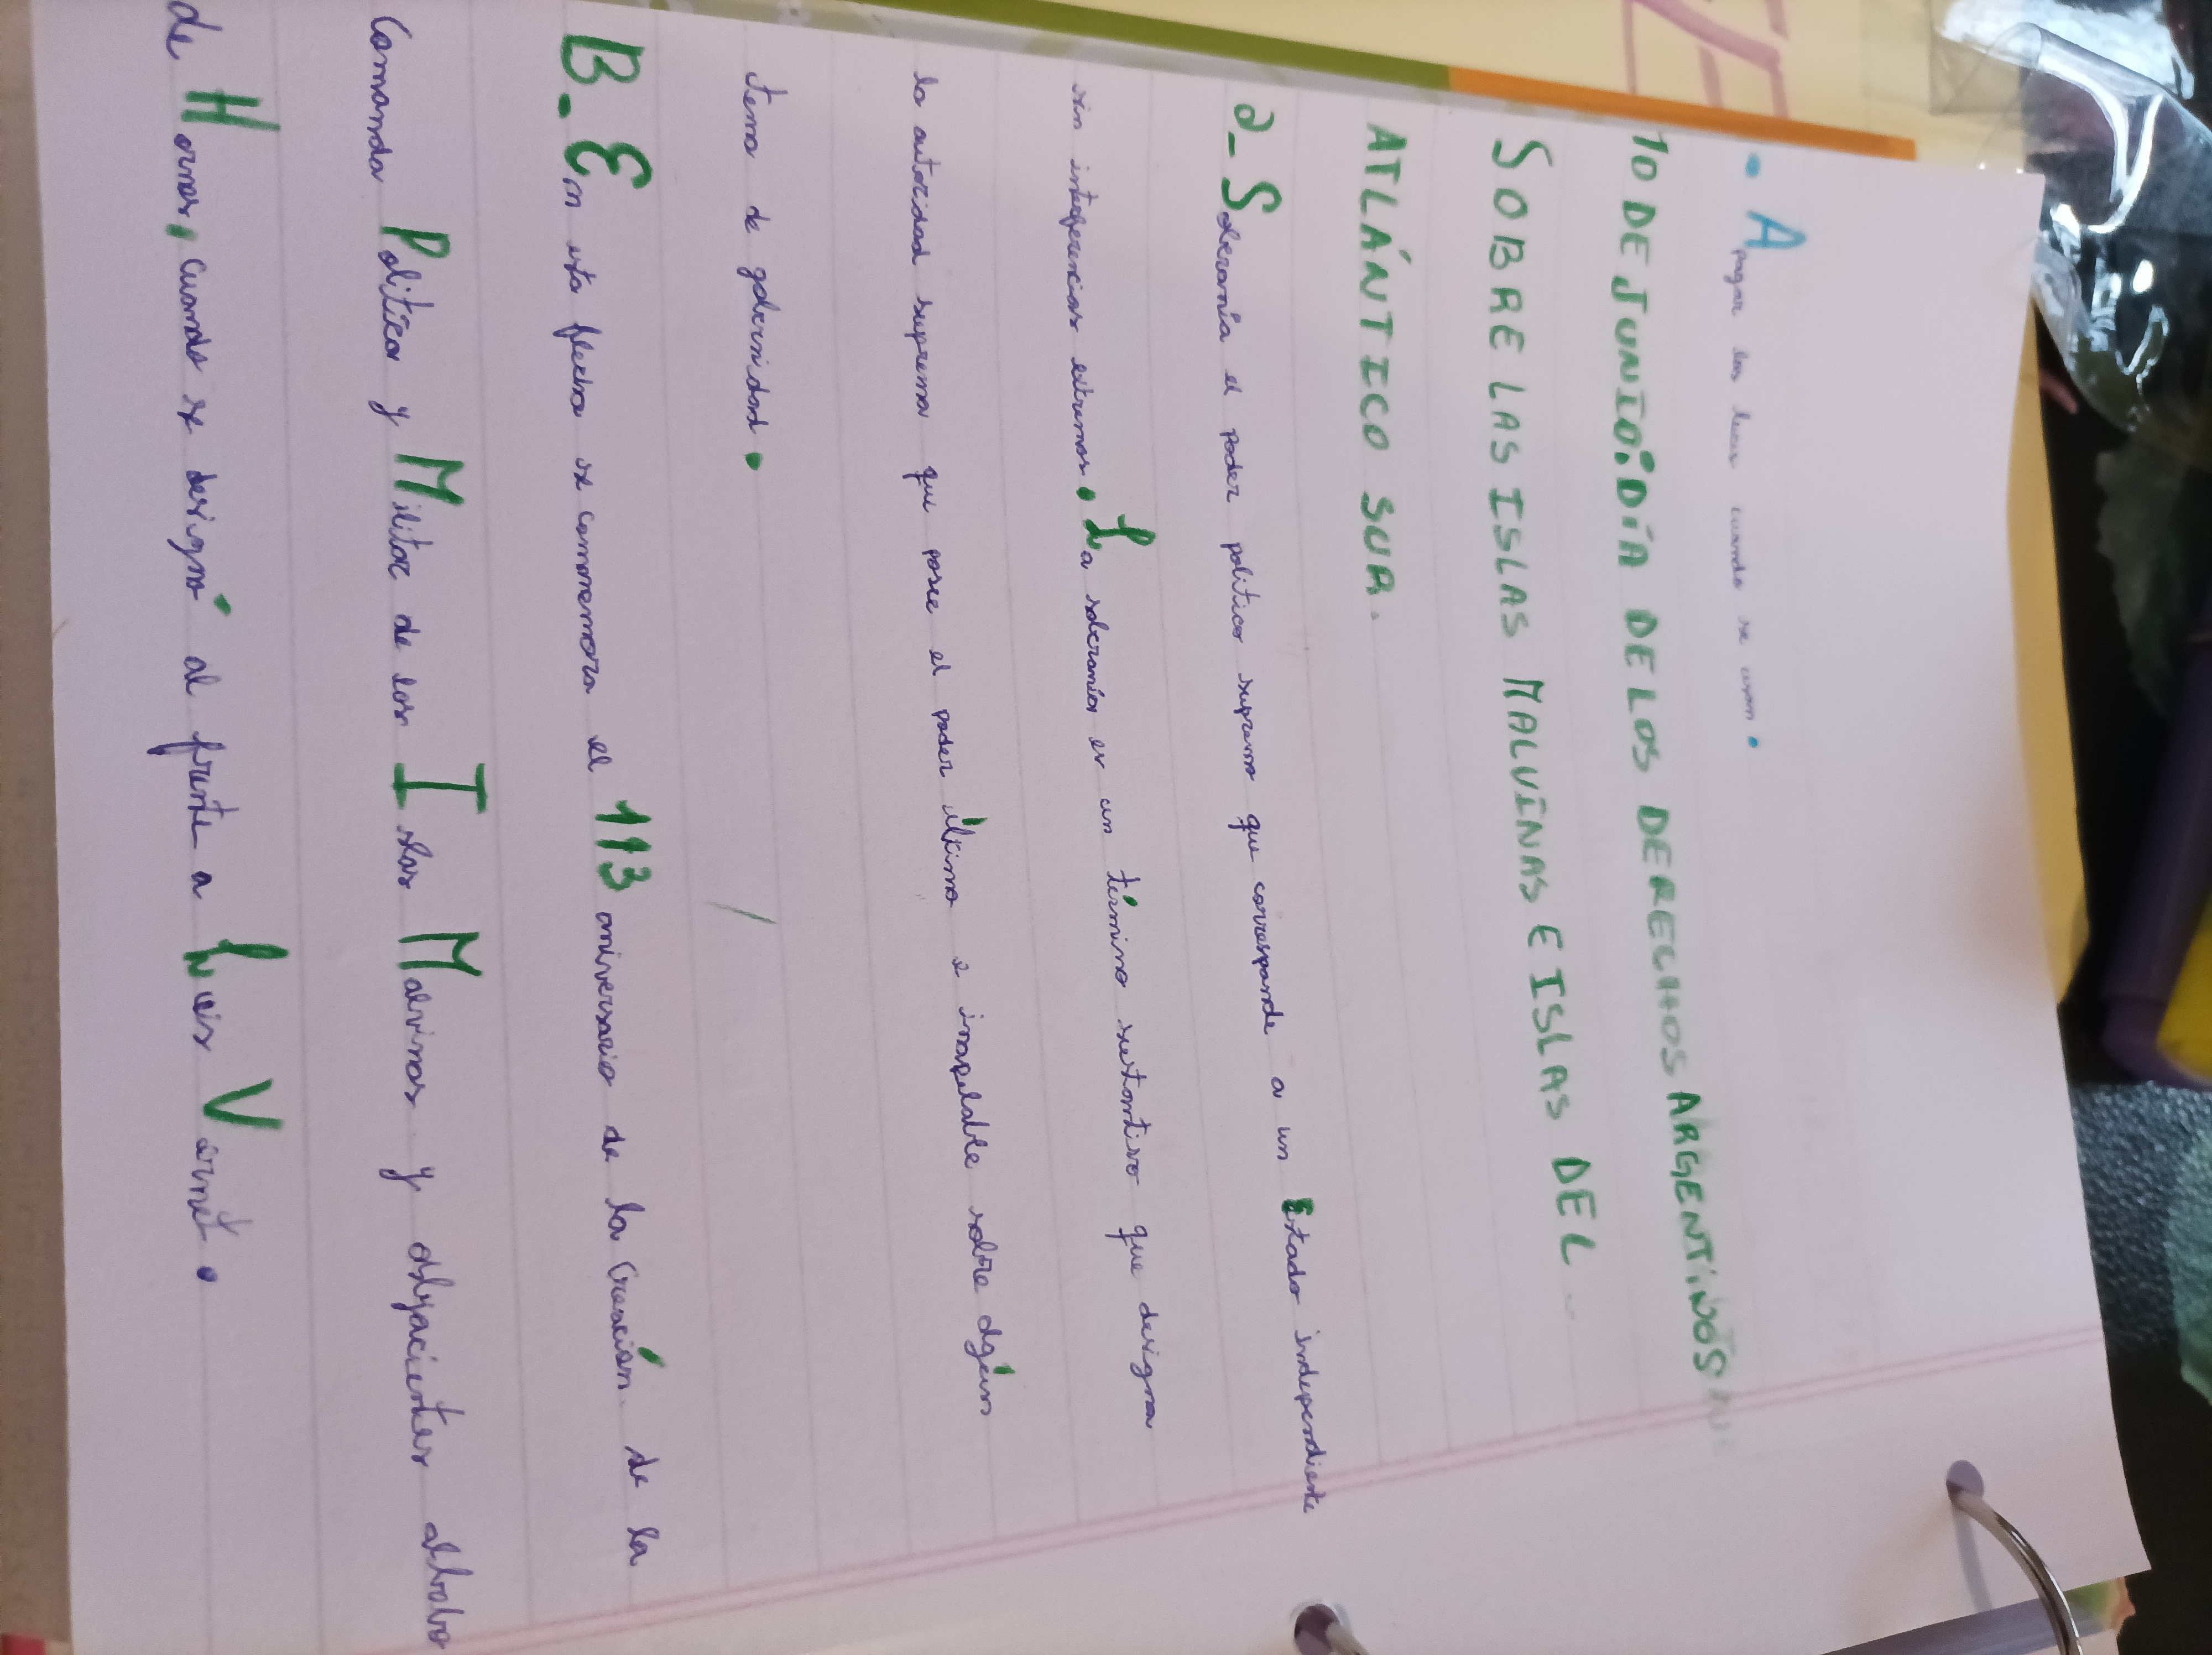 • Apagar las luces cuando se usan.
10 DE JUNIO: DÍA DE LOS DERECHOS ARGENTINOS
SOBRE LAS ISLAS MALVINAS E ISLAS DEL
ATLÁNTICO SUR.
a_ Soberanía el poder politico supremo que corresponde a un Estado independiente
sin interferencias externos. La soberanía es un término sustantivo que designa
la autoridad suprema que posee el poder último e inapelable sobre algún
tema de gobernidad.
B_ En esta fecha se conmemora el 113 aniversario de la Creación de la
Comanda Política y Militar de las Islas Malvinas y adyacientes alcabo
de Hornos, cuando se designó al frente a Luis Vernet.